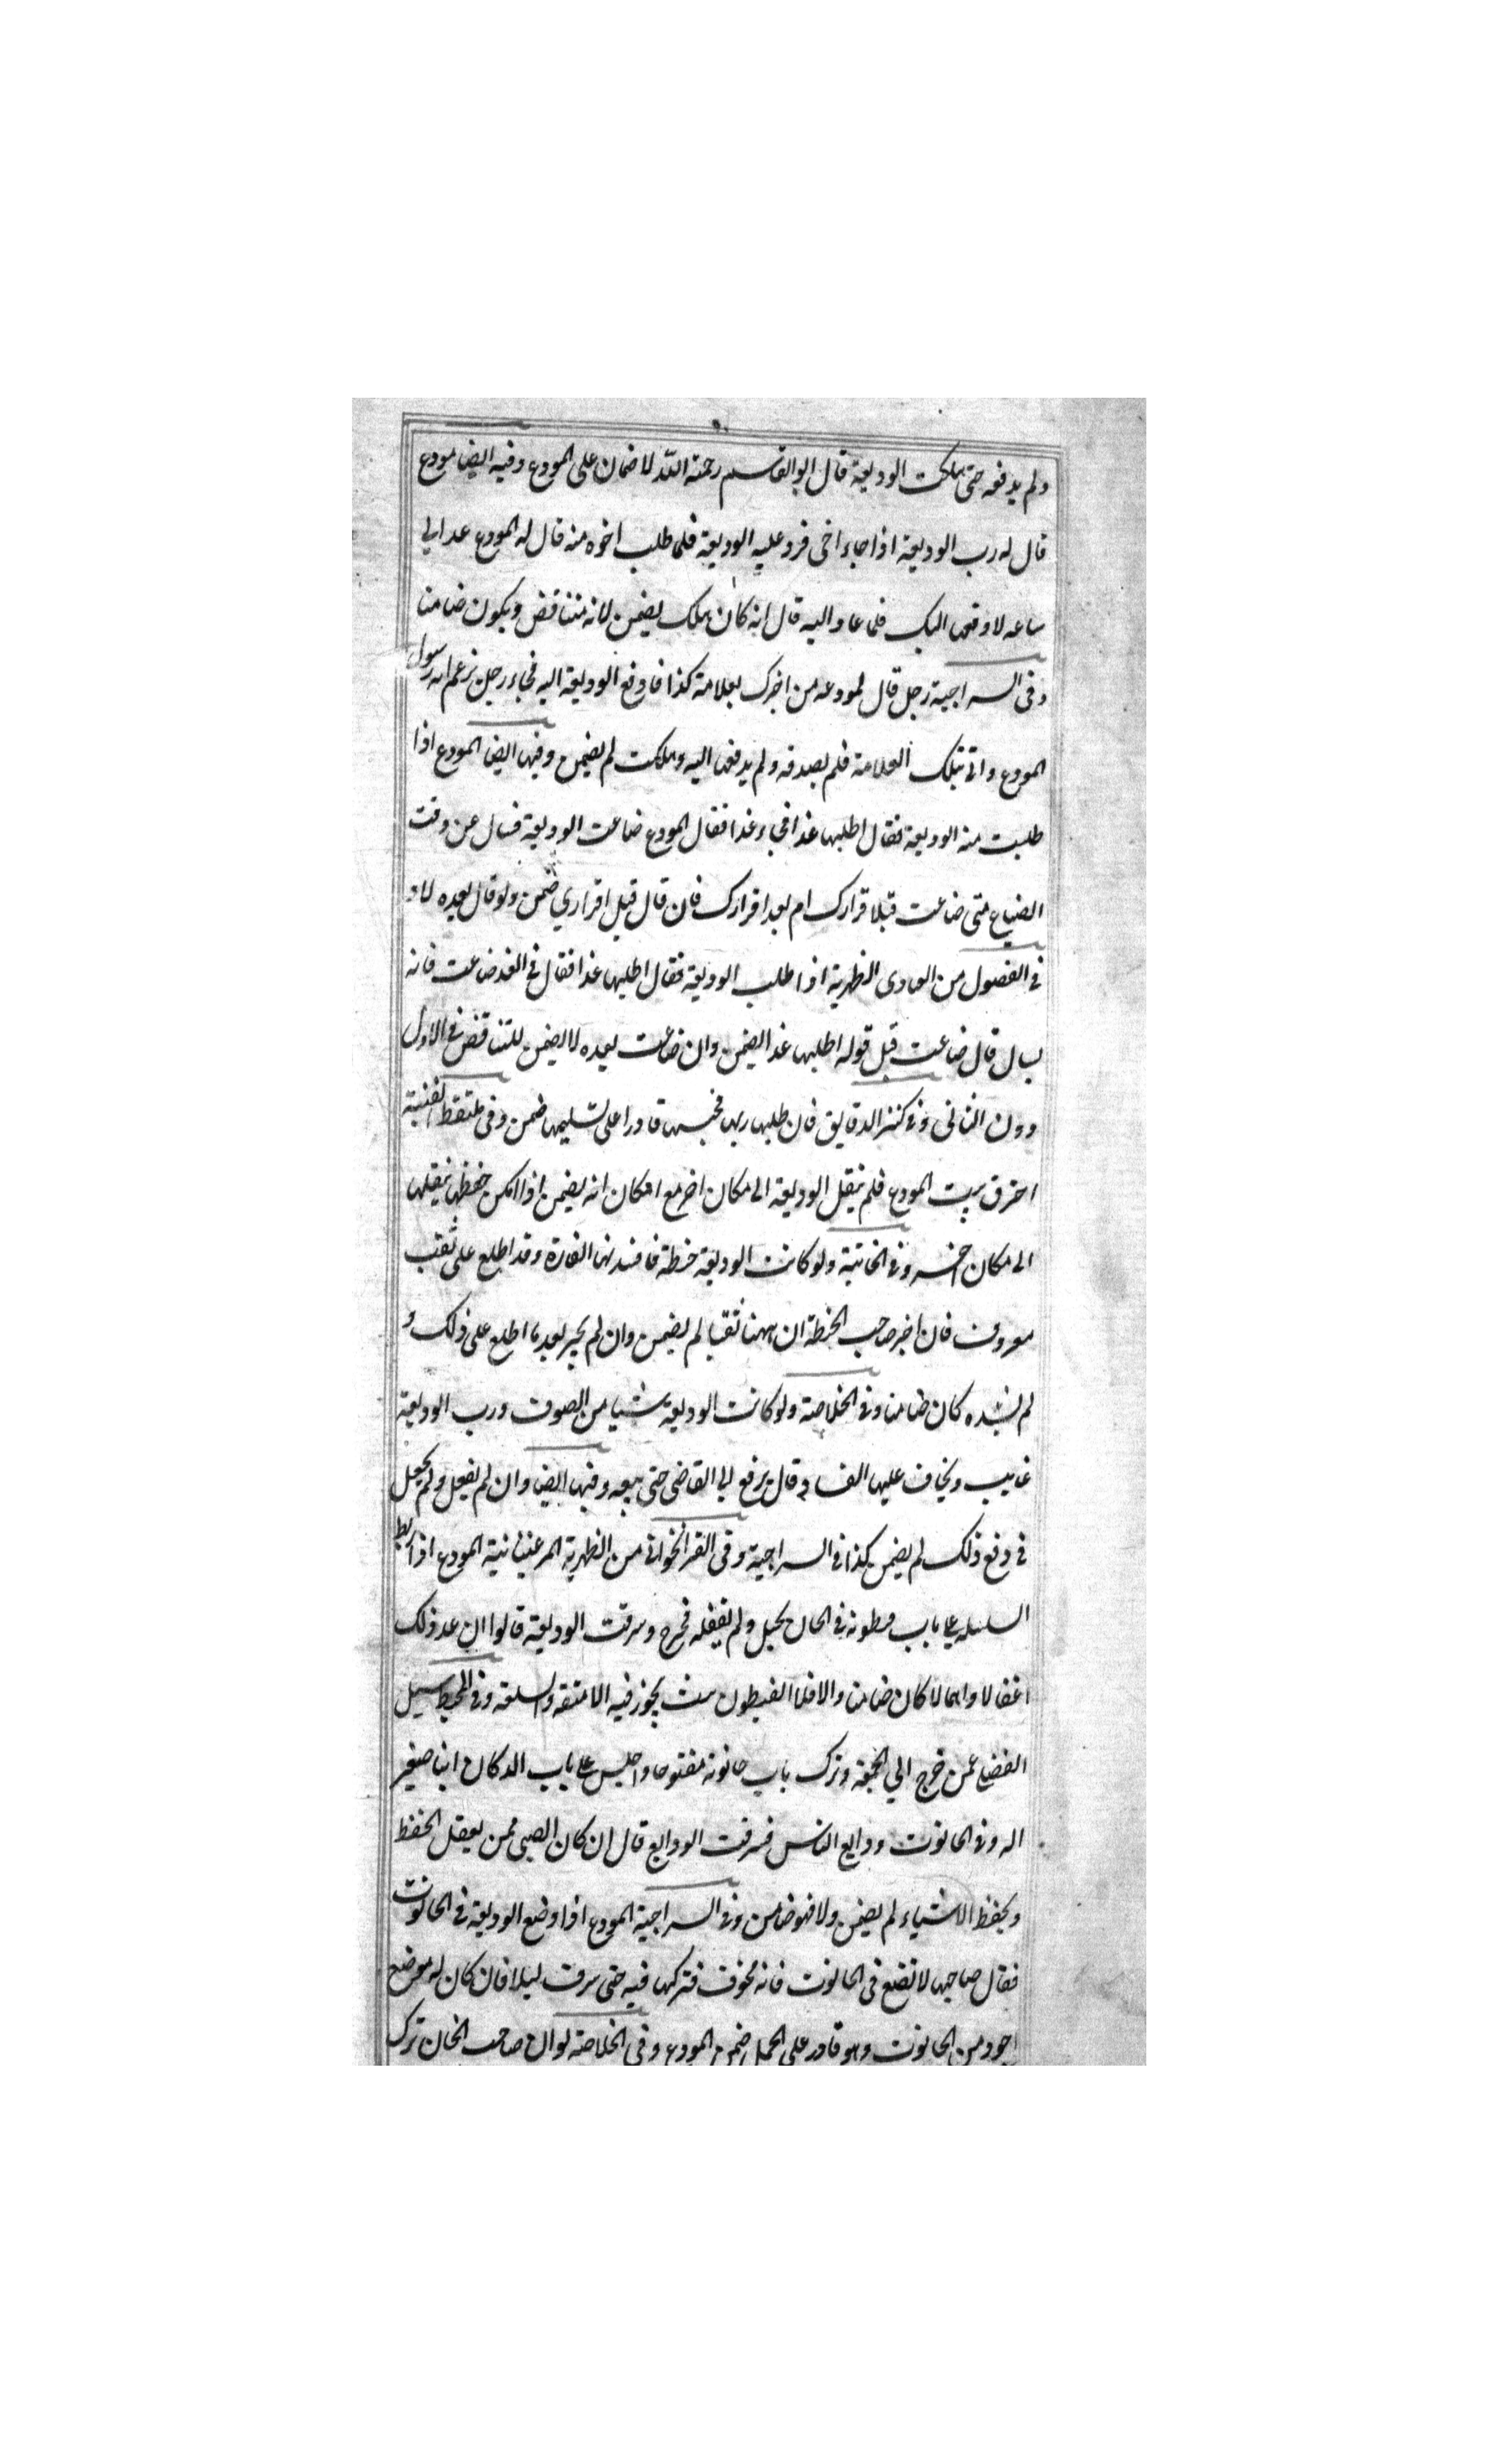 ولم يدفعه حتى هلكت الوديعة قال ابو القاسم رحمة الله لا ضمان على المودع وفيه ايضا مودع
قال له رب الوديعة اذا جاء اخى فرد عليه الوديعة فلما طلب اخوه منه قال له المودع عد الي
ساعه لادفعها اليك فلما عاد اليه قال انه كان هلك يضمن لانه متناقض ويكون ضامنا
وفى السراجية رجل قال لمودعه من اخبرك بعلامة كذا فادفع الوديعة اليه فجاء رجل زعم انه رسول
المودع واتى بتلك العلامة فلم يصدقه ولم يدفعها اليه وهلكت لم يضمن وفيها ايضا المودع اذا
طلبت منه الوديعة فقال اطلبها غدا فجاء غدا فقال المودع ضاعت الوديعة فسال عن وقت
الضياع متى ضاعت قبل اقرارك ام بعد اقرارك فان قال قبل اقراري ضمن ولو قال بعده لا و
فى الفصول من العمادى الظهرية اذا طلب الوديعة فقال اطلبها غدا فقال فى الغد ضاعت فانه
يسال قال ضاعت قبل قوله اطلبها غدا يضمن وان ضاعت بعده لا يضمن للتناقض فى الاول
دون الثانى وفى كنز الدقايق فان طلبها ربها فحبسها قادرا على تسليمها ضمن وفى ملتقط القنية
احترق بيت المودع فلم ينقل الوديعة الى مكان اخر مع امكان انه يضمن اذا امكن حفظها بنقلها
الى مكان اخر وفى الخانية ولو كانت الوديعة حنطة فافسدتها الفارة وقد اطلع على ثقب
معروف فان اخبر صاحب الحنطة ان ههنا ثقبا لم يضمن وان لم يخبر بعد ما اطلع على ذلك و
لم يشده كان ضامنا وفى الخلاصة ولو كانت الوديعة شيا من الصوف ورب الوديعة
غايب ويخاف عليها الفساد قال يرفع الى القاضى حتى يبيعه وفيها ايضا وان لم يفعل ولم يحتل
فى دفع ذلك لم يضمن كذا فى السراجية وفى القراخوانى من الظهرية المرغينانية المودع اذا ربط
السلسله على باب فى الخان بحبل ولم يقفله فخرج وسرقت الوديعة قالوا ان عد ذلك
اغفالا واهمالا كان ضامنا والا فلا يجوز فيه الامتعة والسلعة وفى المحيط سيل
الفضلى عمن خرج الي الجمعة وترك باب حانوته مفتوحا واجلس على باب الدكان ابنا صغير
اله وفى الحانوت ودايع الناس فسرقت الودايع قال ان كان الصبى ممن يعقل الحفظ
ويحفظ الاشياء لم يضمن ولا فهو ضامن وفى السراجية المودع اذا وضع الوديعة فى الحانوت
فقال صاحبها لا تضع فى الحانوت فانه مخوف فتركها فيه حتى سرقت ليلا فان كان له موضع
اجود من الحانوت وهو قادر على الحمل ضمن المودع وفى الخلاصة لو ان صاحب الخان ترك